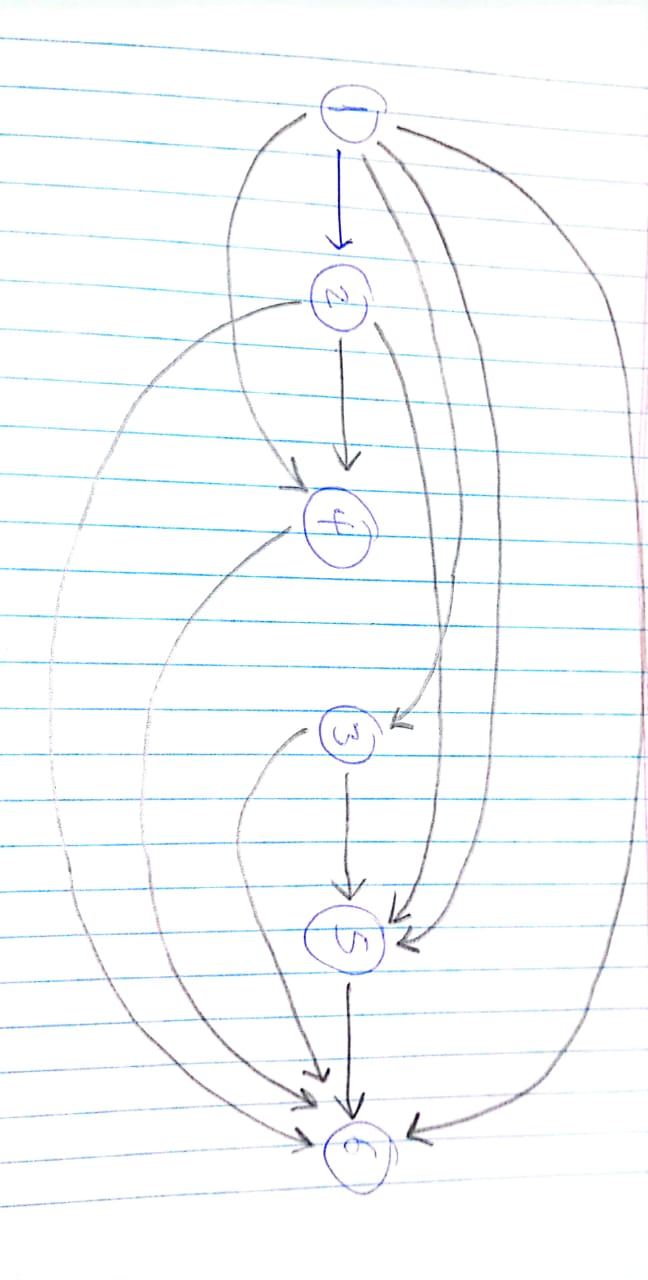 1
2
4
3
5
6